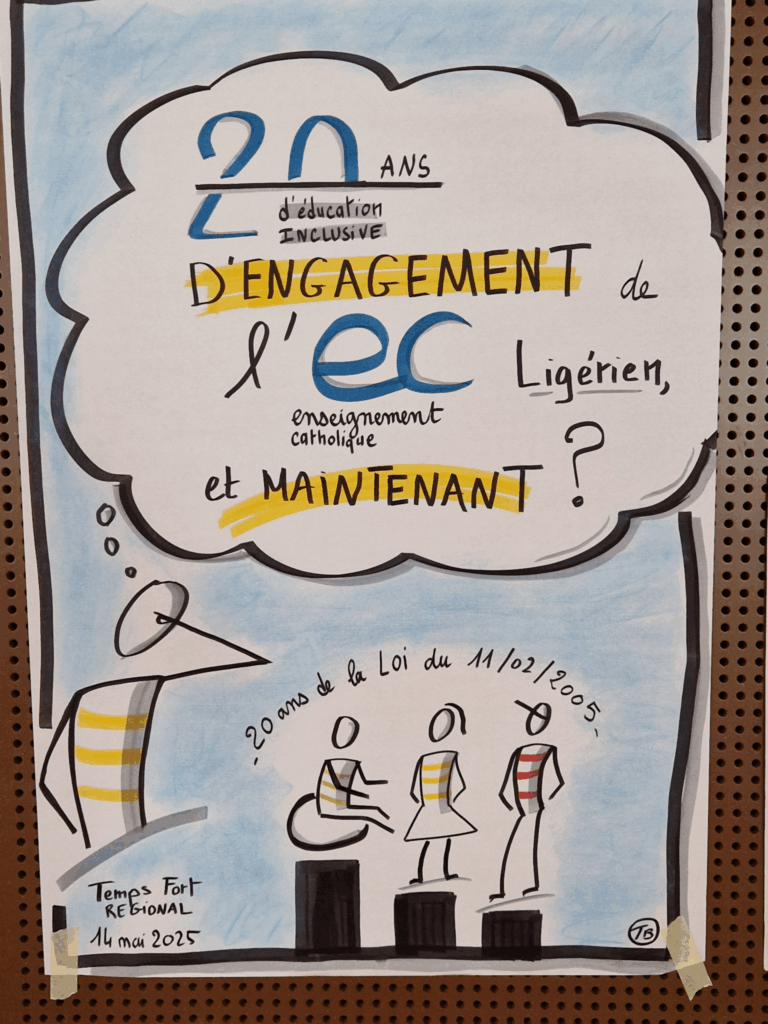 20 ANS
d'éducation
INCLUSIVE
D'ENGAGEMENT de
l'ec Ligérien,
enseignement
catholique
et MAINTENANT ?
- 20 ans de la Loi du 11/02/2005 -
Temps Fort
REGIONAL
14 mai 2025
TB